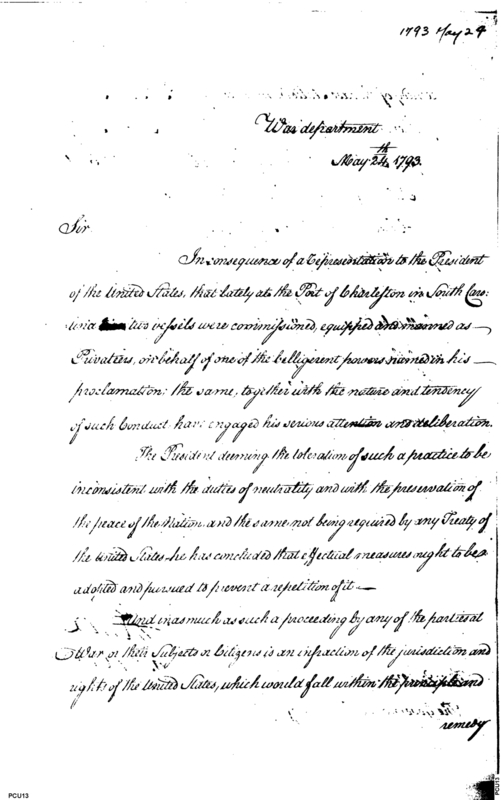 1793 May 24
War department
May 24th 1793.
Sir
In consequence of a Representation to the President
of the United States, that lately at the Port of Charleston in South Caro-
lina two vessels were commissioned, equipped and manned as
Privateers, on behalf of one of the belligerent powers named in his
proclamation: the same, together with the nature and tendency
of such Conduct have engaged his serious attention and deliberation.
The President deeming the toleration of such a practice to be
inconsistent with the duties of neutrality and with the preservation of
the peace of the Nation and the same not being required by any Treaty of
the United States, he has concluded that effectual measures ought to be
adopted and pursued to prevent a repetition of it
And in as much as such a proceeding by any of the parties at
War or their Subjects or Citizens is an infraction of the jurisdiction and
rights of the United States, which would fall within the principle and
remedy
PCU13
PCU13